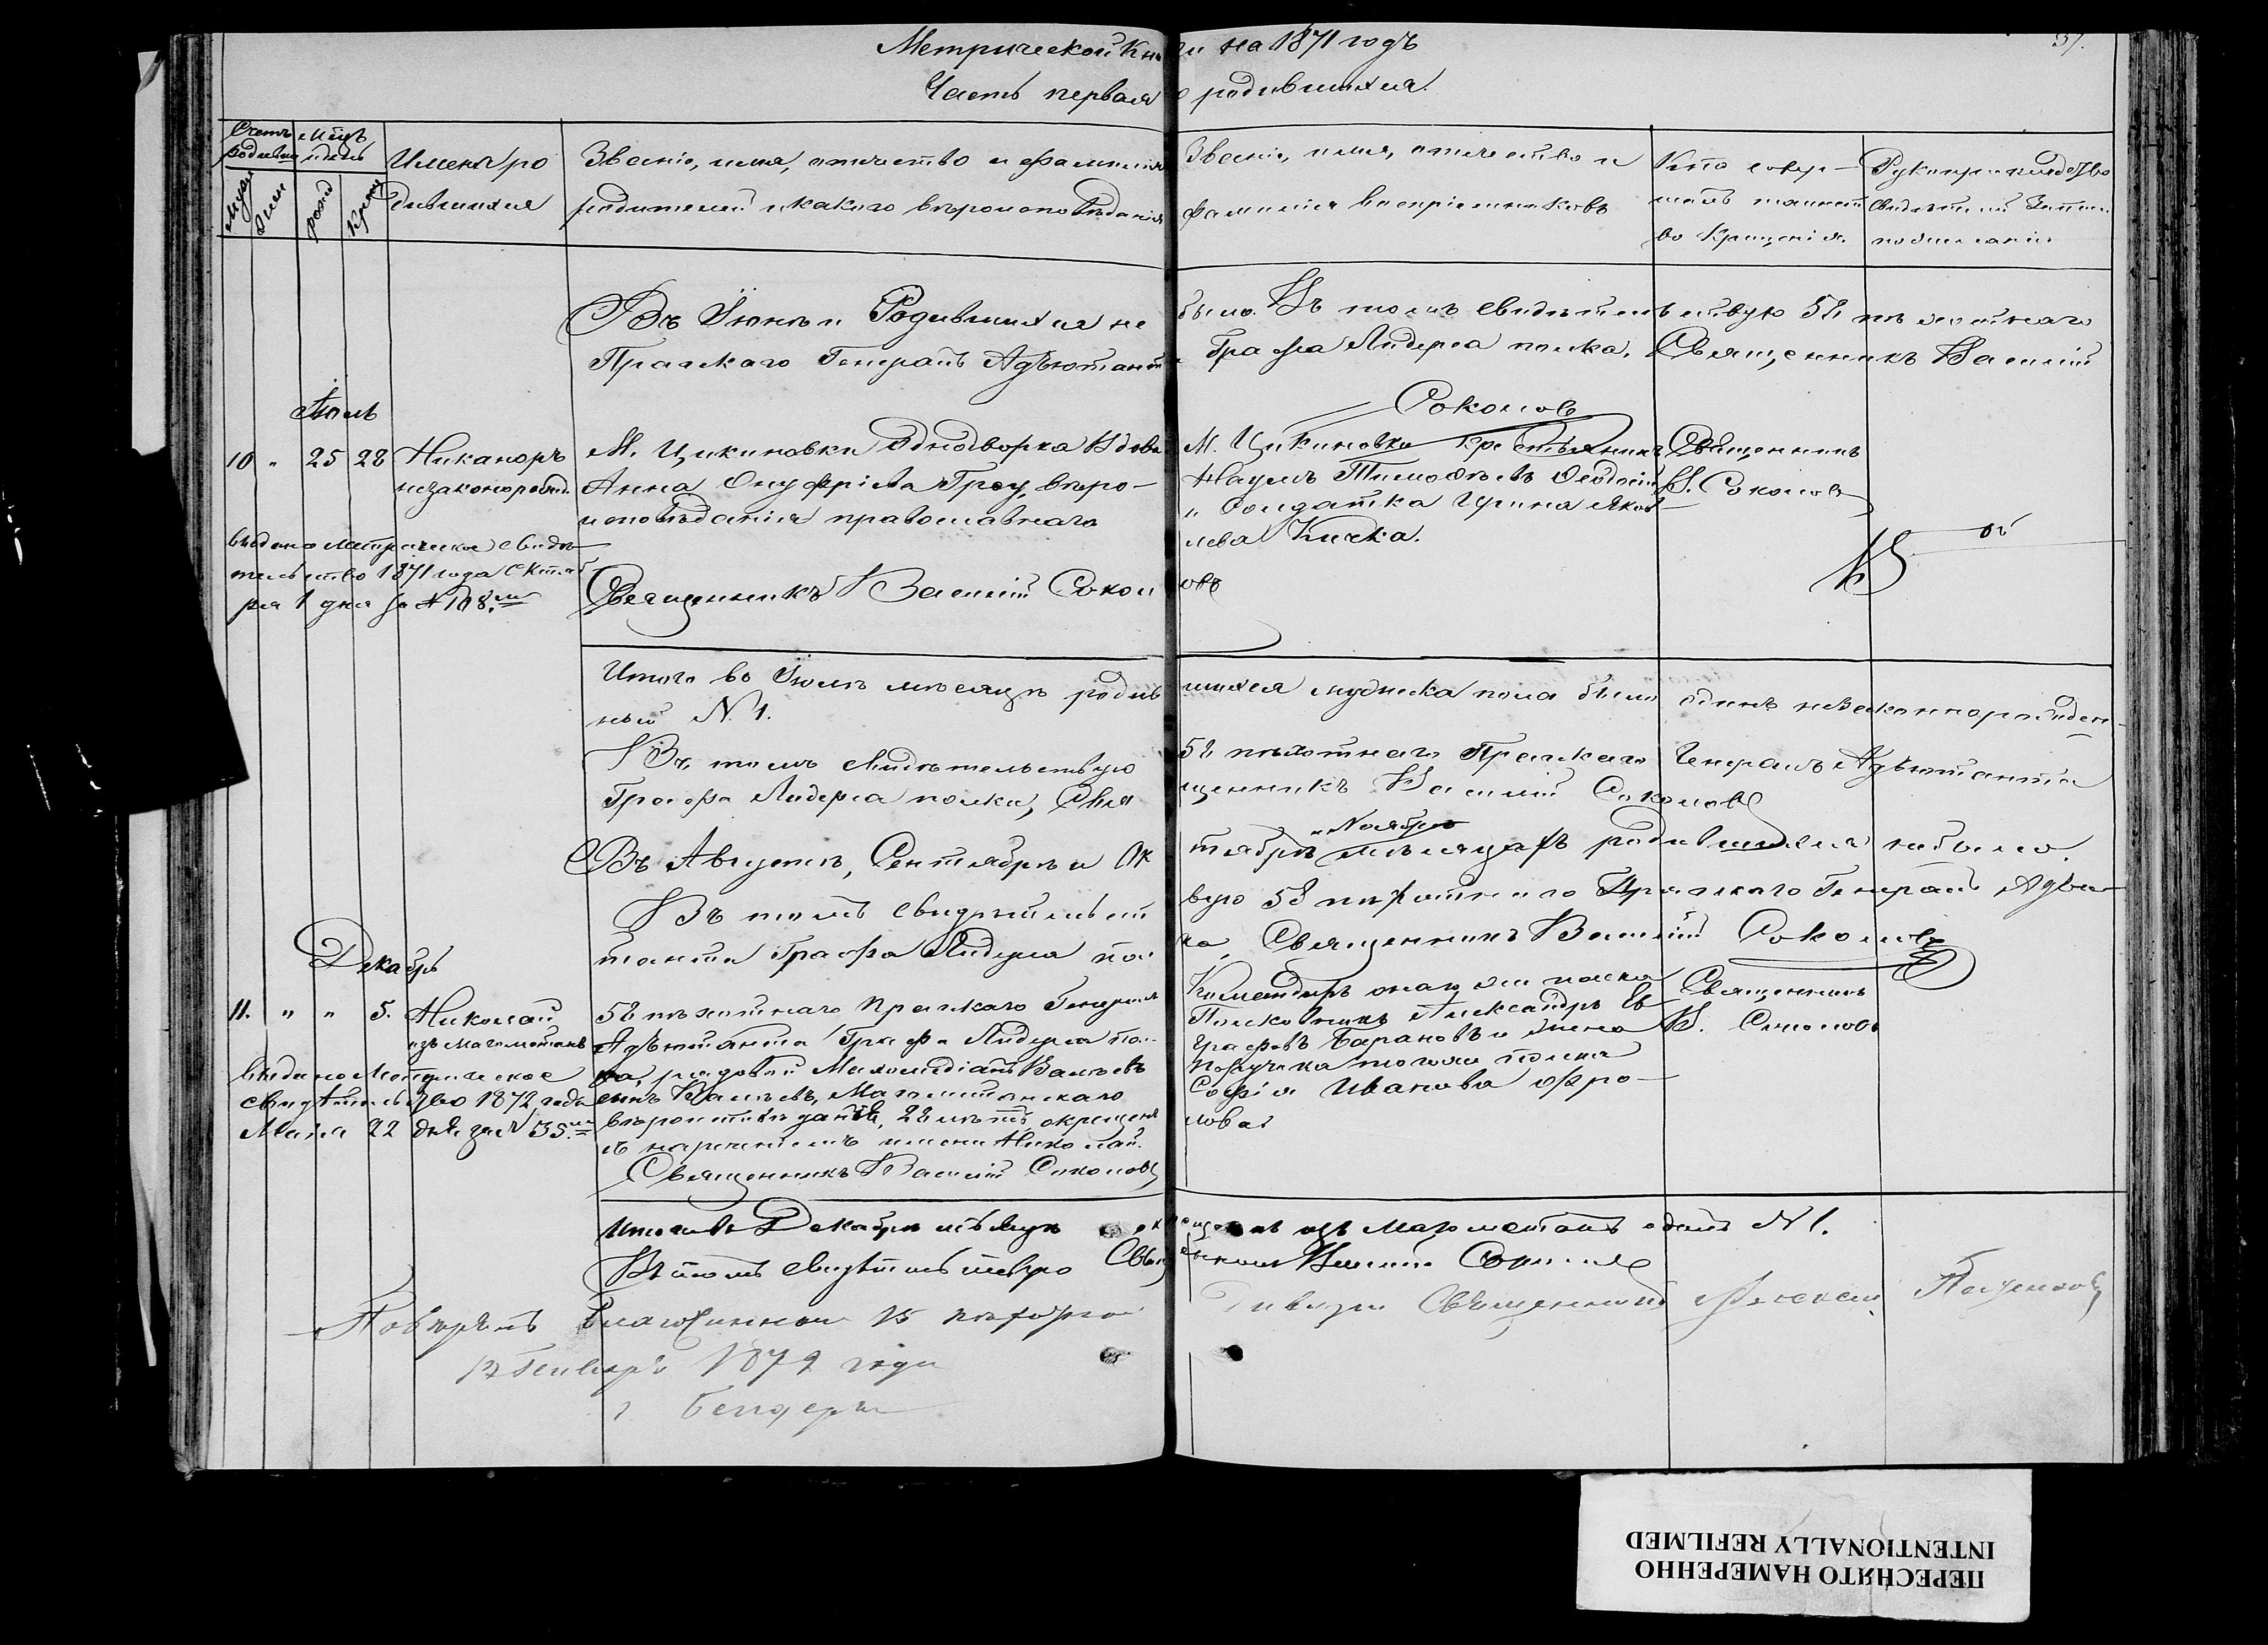 Метрической Книги на 1871 годъ
37.
Часть первая о родившихся.
Счетъ родивш. Мѣсц. и день
Муж. Жен. рожд. Крещ.
Имена ро
дившихся
Званіе, имя, отчество и фамилія
родителей и какого вѣроисповѣданія
Званіе, имя, отчество и
фамилія воспріемниковъ
Кто совер-
шалъ таинст
во Крещенія.
Рукоприкладство
свидѣтелей записи
по желанію
Въ Іюнѣ Родившихся не было. Въ томъ свидѣтельствую 58 пѣхотнаго
Прагскаго Генералъ Адъютанта Графа Лидерса полка, Священникъ Василій
Соколовъ
Іюль
10 " 25 28 Никаноръ
незаконорожд.
М. Цикиновки Однодворка Вдова
Анна Онуфріева Греу, вѣро-
исповѣданія православнаго
М. Цикиновки Крестьянинъ
Наумъ Тимофѣевъ
и Солдатка Ирина Яков-
лева Кичка.
Священникъ
В. Соколовъ
выдано метрическое свидѣ-
тельство 1871 года Октяб
ря 1 дня за № 108.
Священникъ Василій Соколовъ
Итого въ Іюлѣ мѣсяцѣ родившихся мужеска пола было одинъ незаконнорожден-
ный № 1.
Въ томъ свидѣтельствую 58 пѣхотнаго Прагскаго Генералъ Адъютанта
Графа Лидерса полка, Священникъ Василій Соколовъ
Въ Августѣ, Сентябрѣ и Октябрѣ и Ноябрѣ мѣсяцахъ родившихся небыло.
Въ томъ свидѣтельствую 58 пѣхотнаго Прагскаго Генералъ Адъю-
танта Графа Лидерса полка, Священникъ Василій Соколовъ
Декабрь
11. " " 5. Николай
изъ магометанъ
58 пѣхотнаго Прагскаго Генералъ
Адъютанта Графа Лидерса пол-
ка, рядовой
сынъ Магометанскаго
вѣроисповѣданія, 22 лѣтъ, окрещенъ
съ нареченіемъ имени Николай.
Священникъ Василій Соколовъ
Командиръ онаго же полка
Полковникъ Александръ Ев-
графовъ Барановъ и жена
Поручика того же полка
Софія Иванова Фро-
лова
Священникъ
В. Соколовъ
Выдано Метрическое
свидѣтельство 1872 года
Мая 22 дня за № 35.
Итого въ Декабрѣ мѣсяцѣ окрещенъ изъ магометанъ одинъ № 1.
Въ томъ свидѣтельствую Священникъ Василій Соколовъ
Повѣрялъ Благочинный 15 пѣхотной Дивизіи Священникъ Алексѣй
12 Генваря 1872 года
г. Бендеры
ПЕРЕСНЯТО НАМЕРЕННО
INTENTIONALLY REFILMED